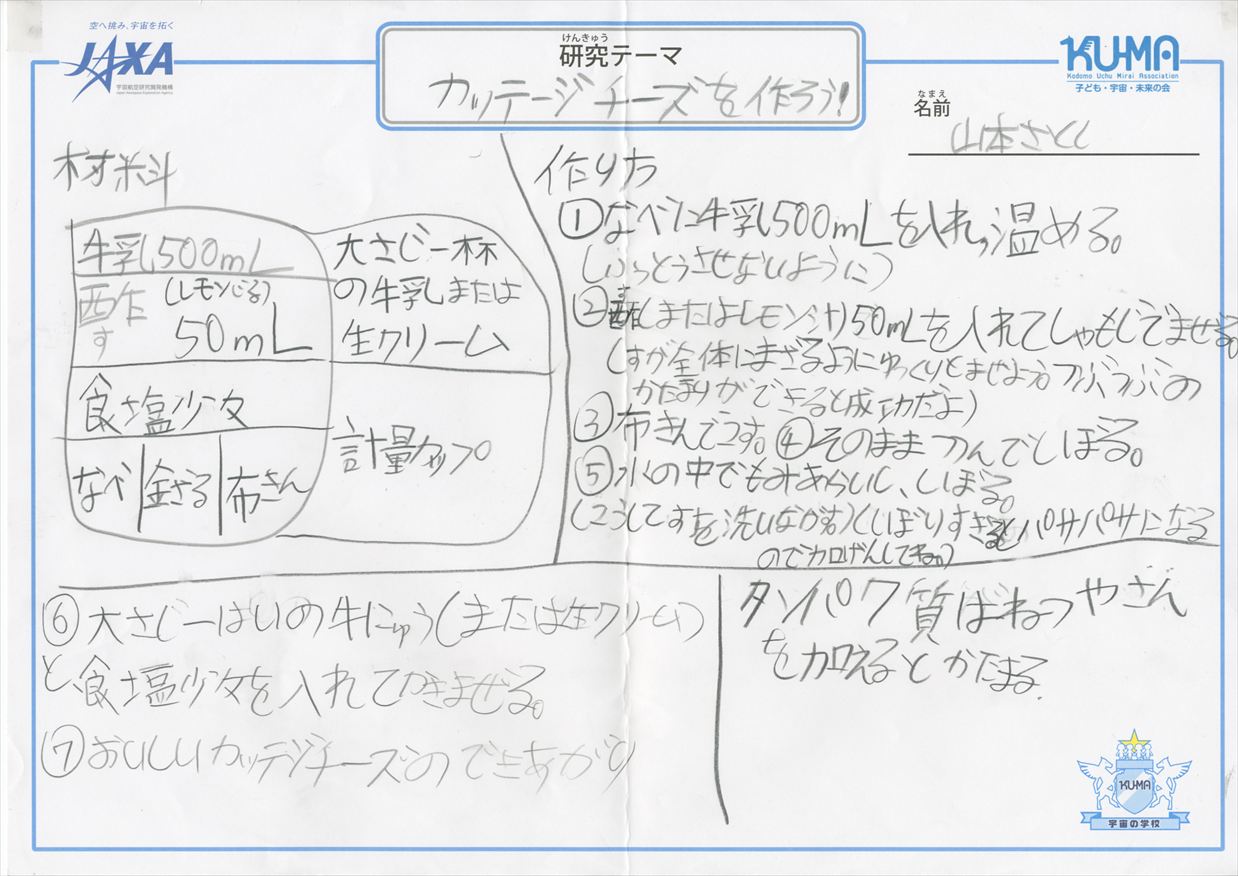 空へ挑み、宇宙を拓く
JAXA
宇宙航空研究開発機構
Japan Aerospace Exploration Agency
けんきゅう
研究テーマ
カッテージチーズを作ろう!
KU-MA
Kodomo Uchu Mirai Association
子ども・宇宙・未来の会
なまえ
名前
山本さとし
材料
牛乳500mL
酢(レモンじる)
す 50mL
食塩少々
なべ 金ざる 布きん
大さじ一杯
の牛乳または
生クリーム
計量カップ
作り方
①なべに牛乳500mLを入れ、温める。
(ふっとうさせないように)
②酢(またはレモン汁)50mLを入れてしゃもじでまぜる。
(すが全体にまざるようにゆっくりとまぜよう。つぶつぶの
かたまりができると成功だよ)
③布きんでこす。④そのままつつんでしぼる。
⑤水の中でもみあらいし、しぼる。
(こうしてすを洗いながす)(しぼりすぎるとパサパサになる
ので加げんしてね。)
⑥大さじ一はいの牛にゅう(または生クリーム)
と食塩少々を入れてかきまぜる。
⑦おいしいカッテジチーズのできあがり
タンパク質はねつやさん
を加えるとかたまる.
KU-MA
宇宙の学校